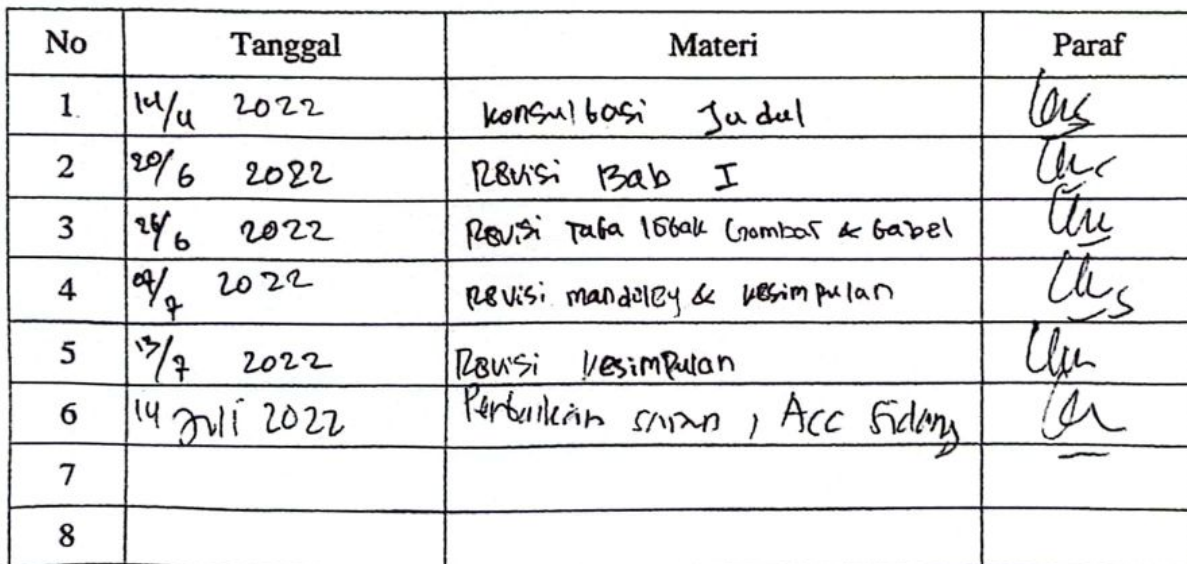 No Tanggal Materi Paraf
1 14/4 2022 Konsultasi Judul
2 20/6 2022 Revisi Bab I
3 26/6 2022 Revisi Tata letak Gambar & tabel
4 07/7 2022 Revisi mandeley & kesimpulan
5 13/7 2022 Revisi kesimpulan
6 14 Juli 2022 Perbaikan saran, Acc Sidang
7
8